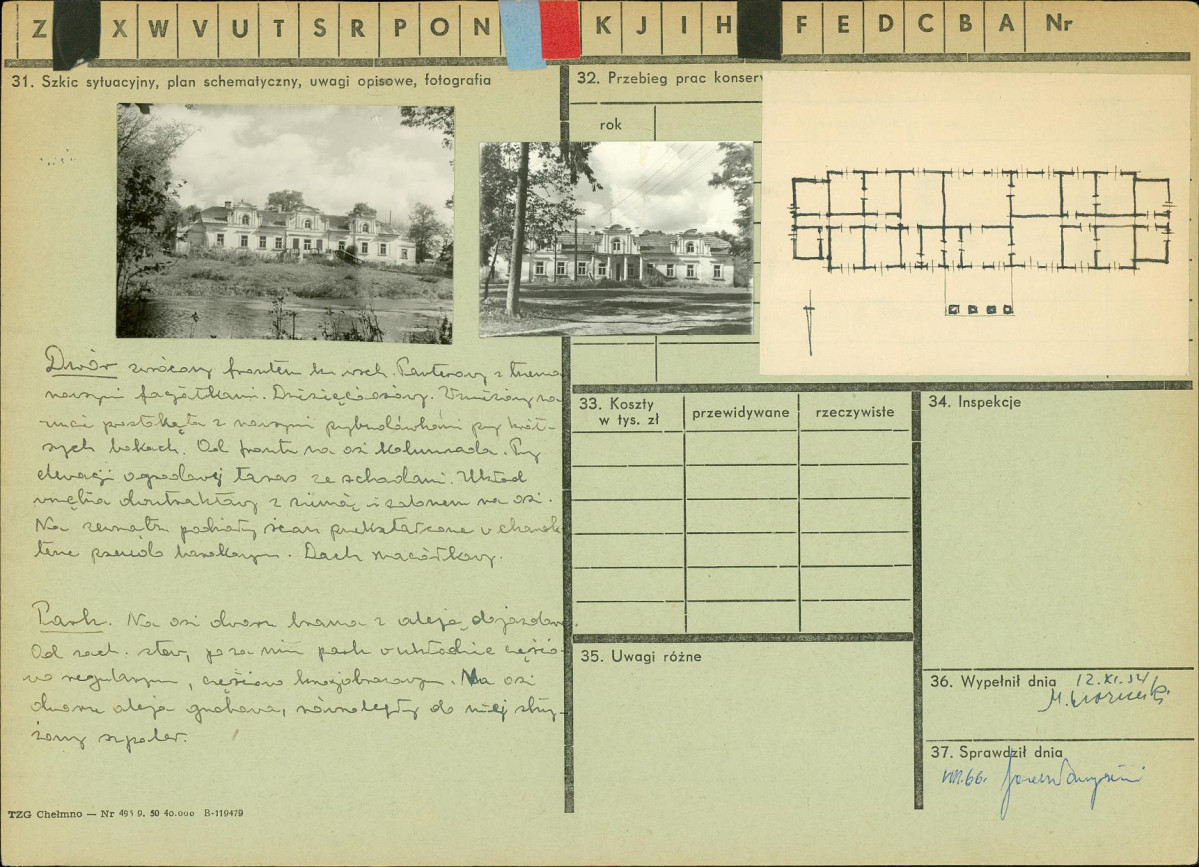 Z X W V U T S R P O N K J I H F E D C B A Nr
31. Szkic sytuacyjny, plan schematyczny, uwagi opisowe, fotografia
32. Przebieg prac konserw
rok
Dwór zwrócony frontem ku wsch. Parterowy z trzema
nowszymi facjatkami. Dziesięcioosiowy. Wzniesiony na
rzucie prostokąta z nowszymi przybudówkami przy krót-
szych bokach. Od frontu na osi kolumnada. Przy
elewacji ogrodowej taras ze schodami. Układ
wnętrza dwutraktowy z sienią i salonem na osi.
Na zewnątrz podziały ścian przekształcone w charak
terze pseudo barokowym. Dach naczółkowy.
Park. Na osi dworu brama z aleją dojazdową.
Od zach. staw, poza nim park w układzie częścio-
wo regularnym, częściowo krajobrazowym. Na osi
dworu aleja grabowa, równoległy do niej strzy-
żony szpaler.
33. Koszty
w tys. zł
przewidywane
rzeczywiste
34. Inspekcje
35. Uwagi różne
36. Wypełnił dnia 12.XI.54
37. Sprawdził dnia
VIII.66.
TZG Chełmno — Nr 495 9. 50 40.000 B-119479